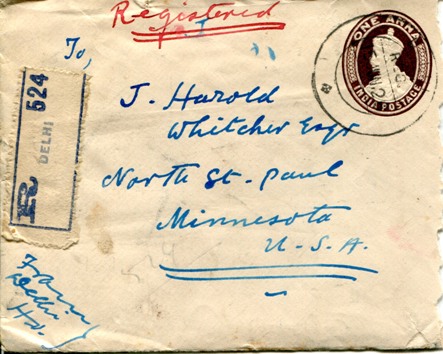 Registered
To,
ONE ANNA
INDIA POSTAGE
R DELHI 524
J. Harold
Whitcher Esqr
North St. Paul
Minnesota
U. S. A.
From
Delhi